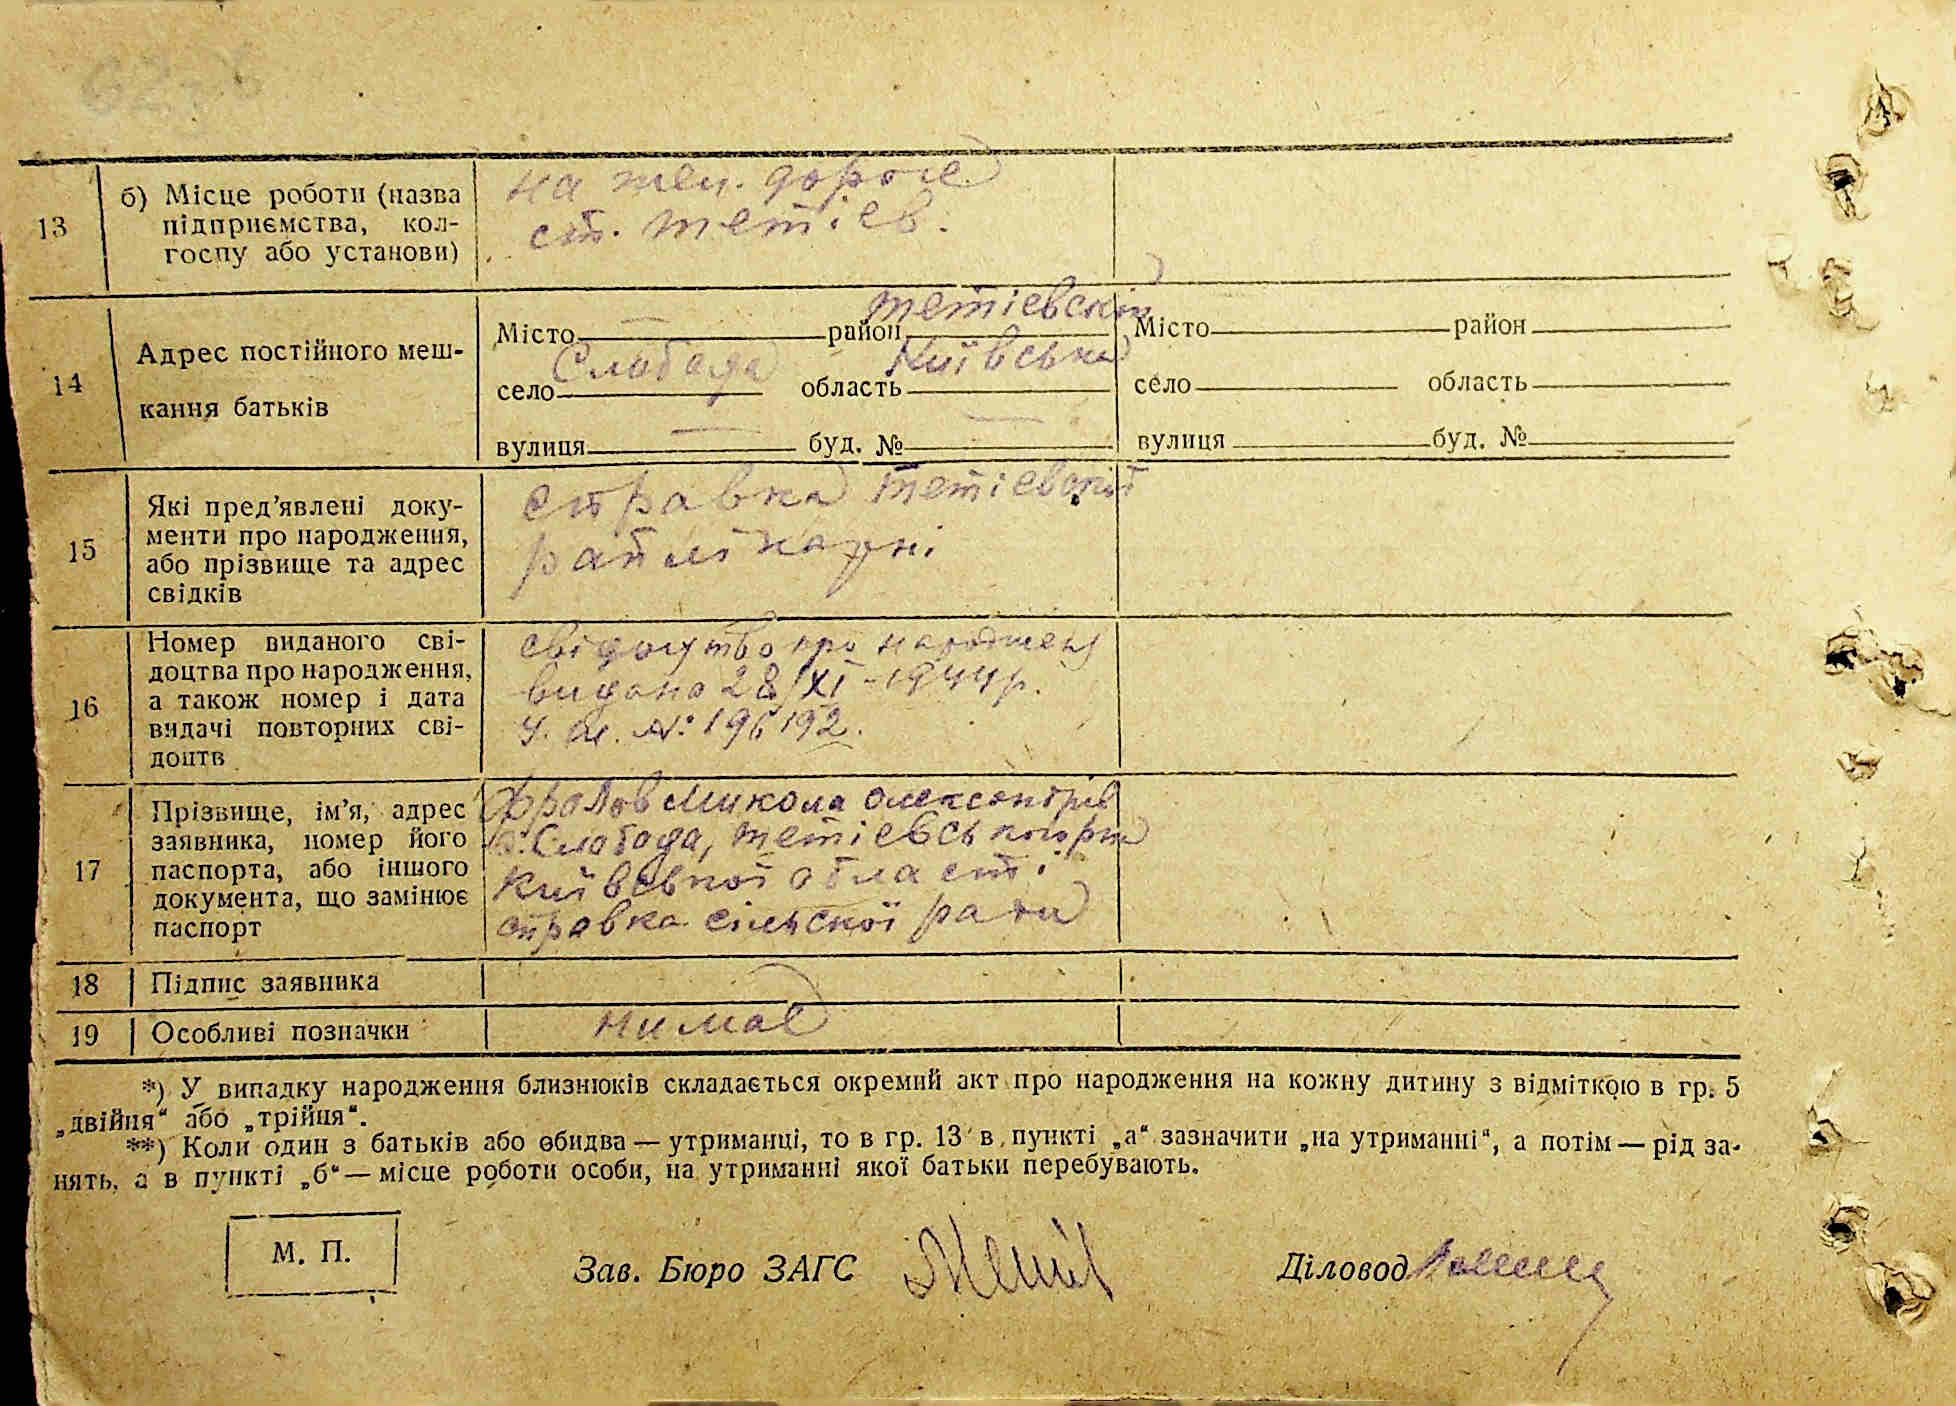 13
б) Місце роботи (назва
підприємства, кол-
госпу або установи)
на жел. дороге
ст. Тетіев.
14
Адрес постійного меш-
кання батьків
Місто — район Тетіевскій
село Слобода область Київська
вулиця — буд. № —
Місто район
село область
вулиця буд. №
15
Які пред'явлені доку-
менти про народження,
або прізвище та адрес
свідків
справка Тетіевскої
райлікарні
16
Номер виданого сві-
доцтва про народження,
а також номер і дата
видачі повторних сві-
доцтв
свідоцтво про народжен
видано 28/XI-1944р.
№ 196192.
17
Прізвище, ім'я, адрес
заявника, номер його
паспорта, або іншого
документа, що замінює
паспорт
Фролов Микола Олександрів
с. Слобода, Тетіевського р-н
Київської області
справка сільскої ради
18 Підпис заявника
19 Особливі позначки
нимає
*) У випадку народження близнюків складається окремий акт про народження на кожну дитину з відміткою в гр. 5
„двійня“ або „трійня“.
**) Коли один з батьків або обидва — утриманці, то в гр. 13 в пункті „а“ зазначити „на утриманні“, а потім — рід за-
нять, а в пункті „б“ — місце роботи особи, на утриманні якої батьки перебувають.
М. П.
Зав. Бюро ЗАГС
Діловод